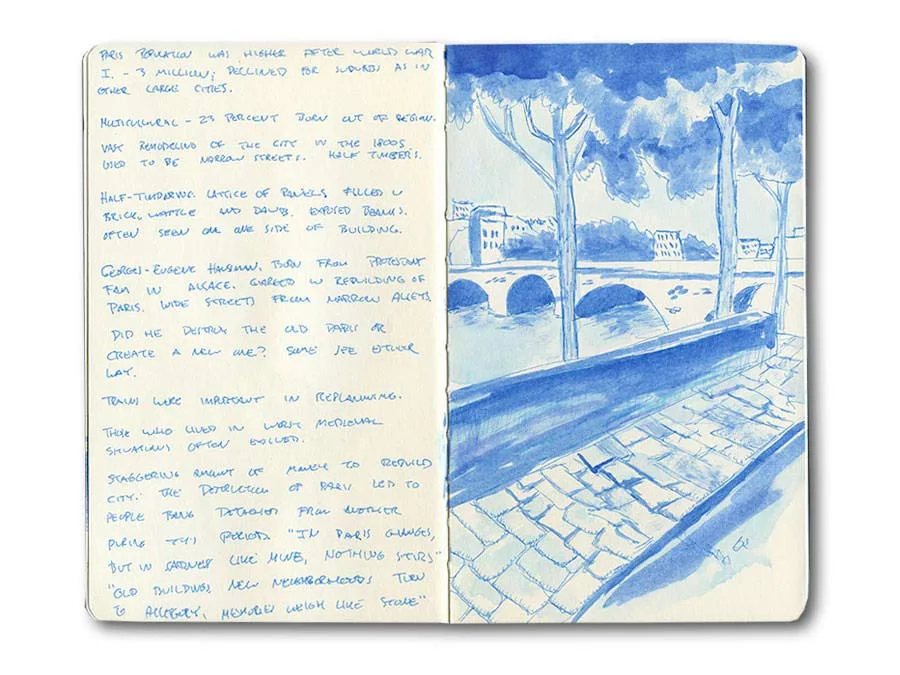 PARIS POPULATION WAS HIGHER AFTER WORLD WAR
I. - 3 MILLION; DECLINED FOR SUBURBS AS IN
OTHER LARGE CITIES.
MULTICULTURAL - 23 PERCENT BORN OUT OF REGION.
VAST REMODELING OF THE CITY IN THE 1800S
USED TO BE NARROW STREETS. HALF TIMBERS.
HALF-TIMBERING. LATTICE OF PANELS FILLED W
BRICK, WATTLE AND DAUB, EXPOSED BEAMS.
OFTEN SEEN ON ONE SIDE OF BUILDING.
GEORGES-EUGENE HAUSMAN. BORN FROM PROTESTANT
FAM IN ALSACE. CHARGED W REBUILDING OF
PARIS. WIDE STREETS FROM NARROW ALLEYS.
DID HE DESTROY THE OLD PARIS OR
CREATE A NEW ONE? SOME SEE EITHER
WAY.
TRAINS WERE IMPORTANT IN REPLANNING.
THOSE WHO LIVED IN WORST MEDIEVAL
SITUATIONS OFTEN EVICTED.
STAGGERING AMOUNT OF MONEY TO REBUILD
CITY. THE DESTRUCTION OF PARIS LED TO
PEOPLE BEING DETACHED FROM ANOTHER
DURING THIS PERIOD. "IN PARIS CHANGES,
BUT IN SADNESS LIKE MINE, NOTHING STIRS"
"OLD BUILDINGS, NEW NEIGHBORHOODS TURN
TO ALLEGORY, MEMORIES WEIGH LIKE STONE"